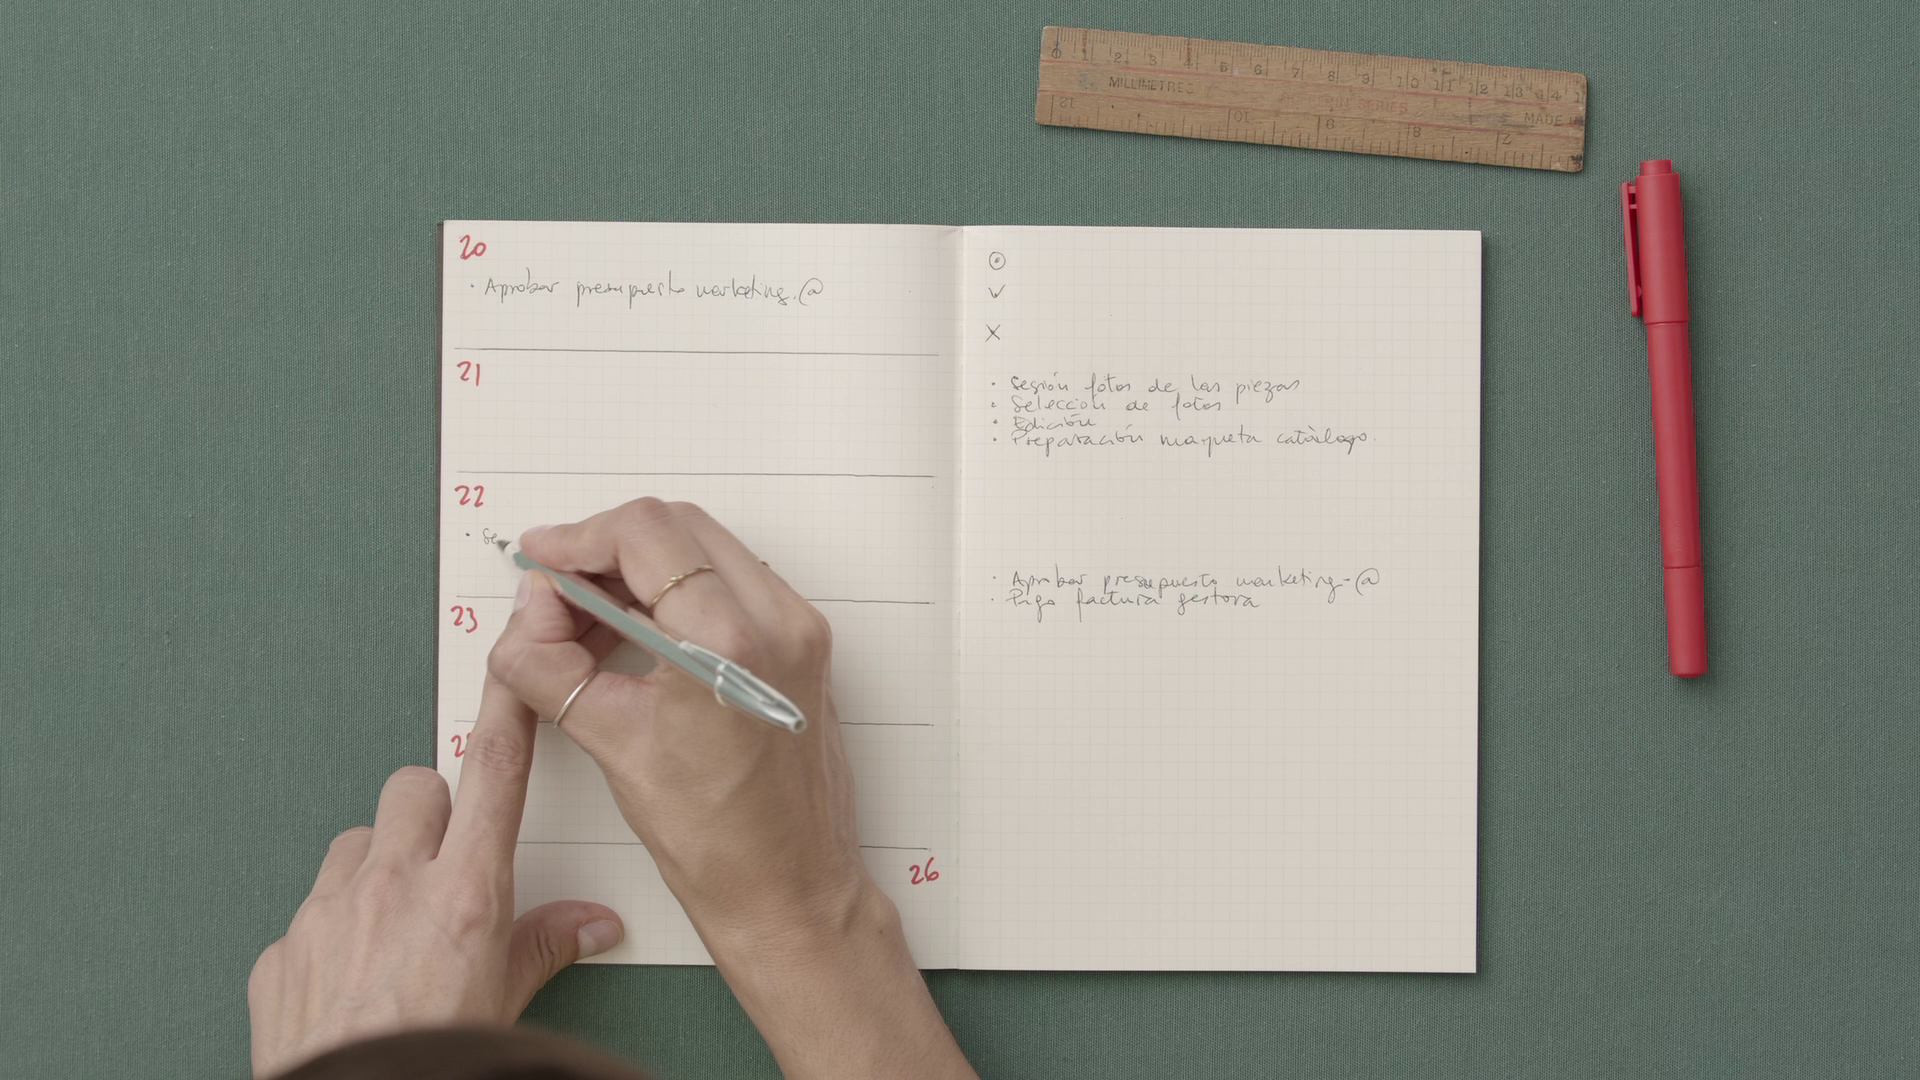 20
· Aprobar presupuesto marketing. @
21
22
· Se
23
26
· Sesión fotos de las piezas
· Selección de fotos
· Edición
· Preparación maqueta catálogo.
· Aprobar presupuesto marketing - @
· Pago factura gestora
0 1 2 3 4 5 6 7 8 9 10 11 12 13 14 1
MILLIMETRES
SERIES
MADE
12 10 9 8 7